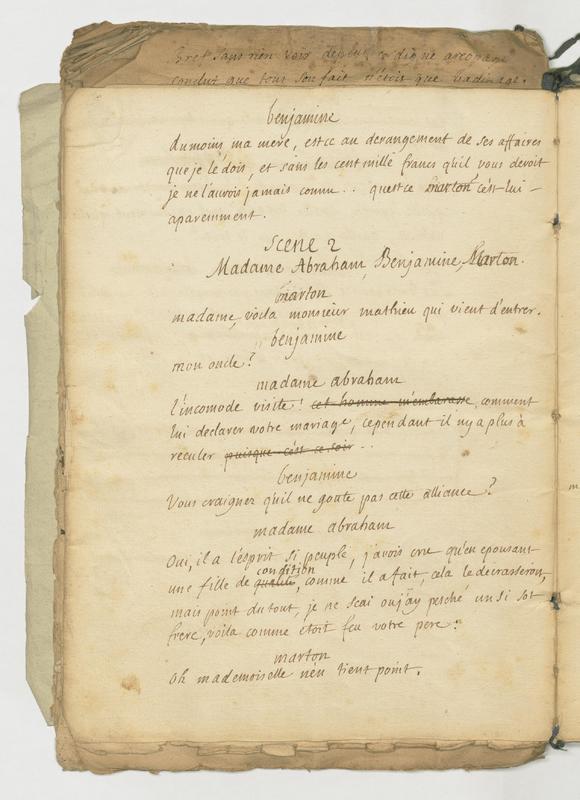 Bref sans rien voir depuis ce digne areopage
conclut que tout son fait n'étoit que badinage.
benjamine
du moins, ma mere, estce au derangement de ses affaires
que je le dois, et sans les cent mille francs qu'il vous devoit
je ne l'aurois jamais connu .. quest ce marton c'est lui -
aparemment.
scene 2
Madame Abraham, Benjamine, Marton.
marton
madame, voila monsieur mathieu qui vient d'entrer.
benjamine
mon oncle?
madame abraham
l'incomode visite! cet homme m'embarasse comment
lui declarer votre mariage, cependant il n'y a plus à
reculer puisque c'est ce soir ..
benjamine
Vous craignez qu'il ne goute pas cette alliance?
madame abraham
Oui, il a l'esprit si peuple, j'avois cru qu'en epousant
condition
une fille de qualité, comme il a fait, cela le decrasseroit,
mais point du tout, je ne scai ou j'ay pesché un si sot
frere, voila comme etoit feu votre pere.
marton
oh mademoiselle n'en tient point.